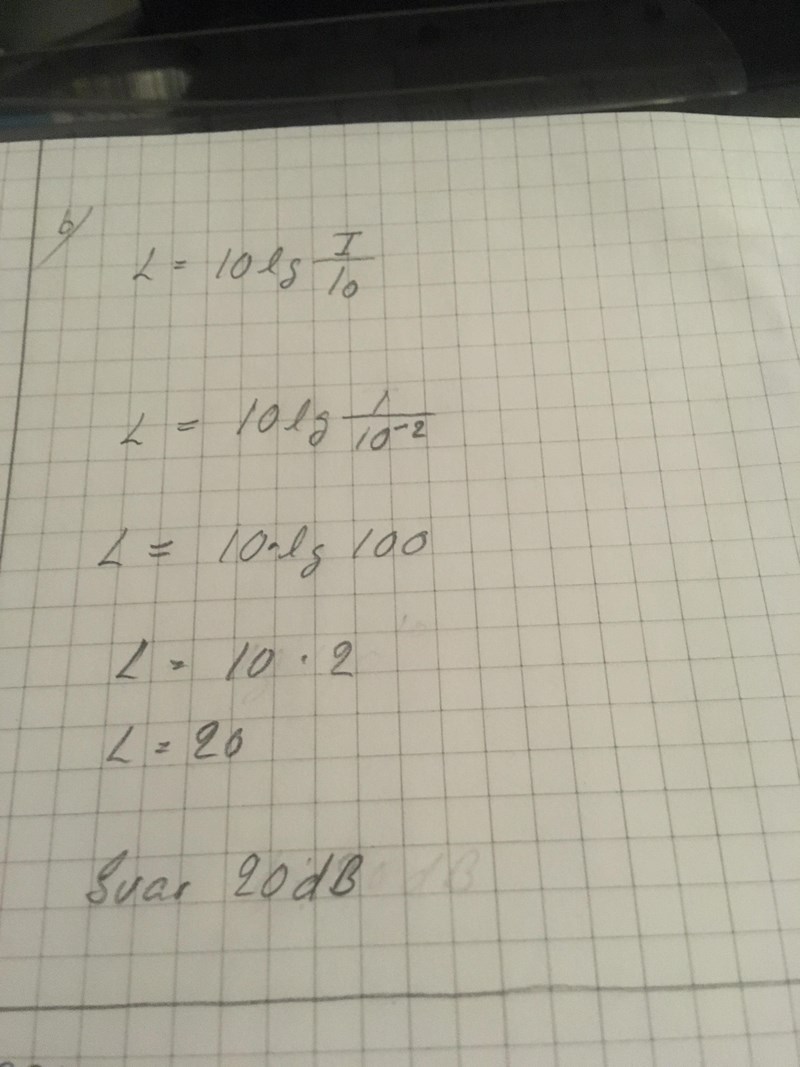 b/
L = 10 lg I/10
L = 10 lg 1/10⁻²
L = 10·lg 100
L = 10 · 2
L = 20
Svar 20dB